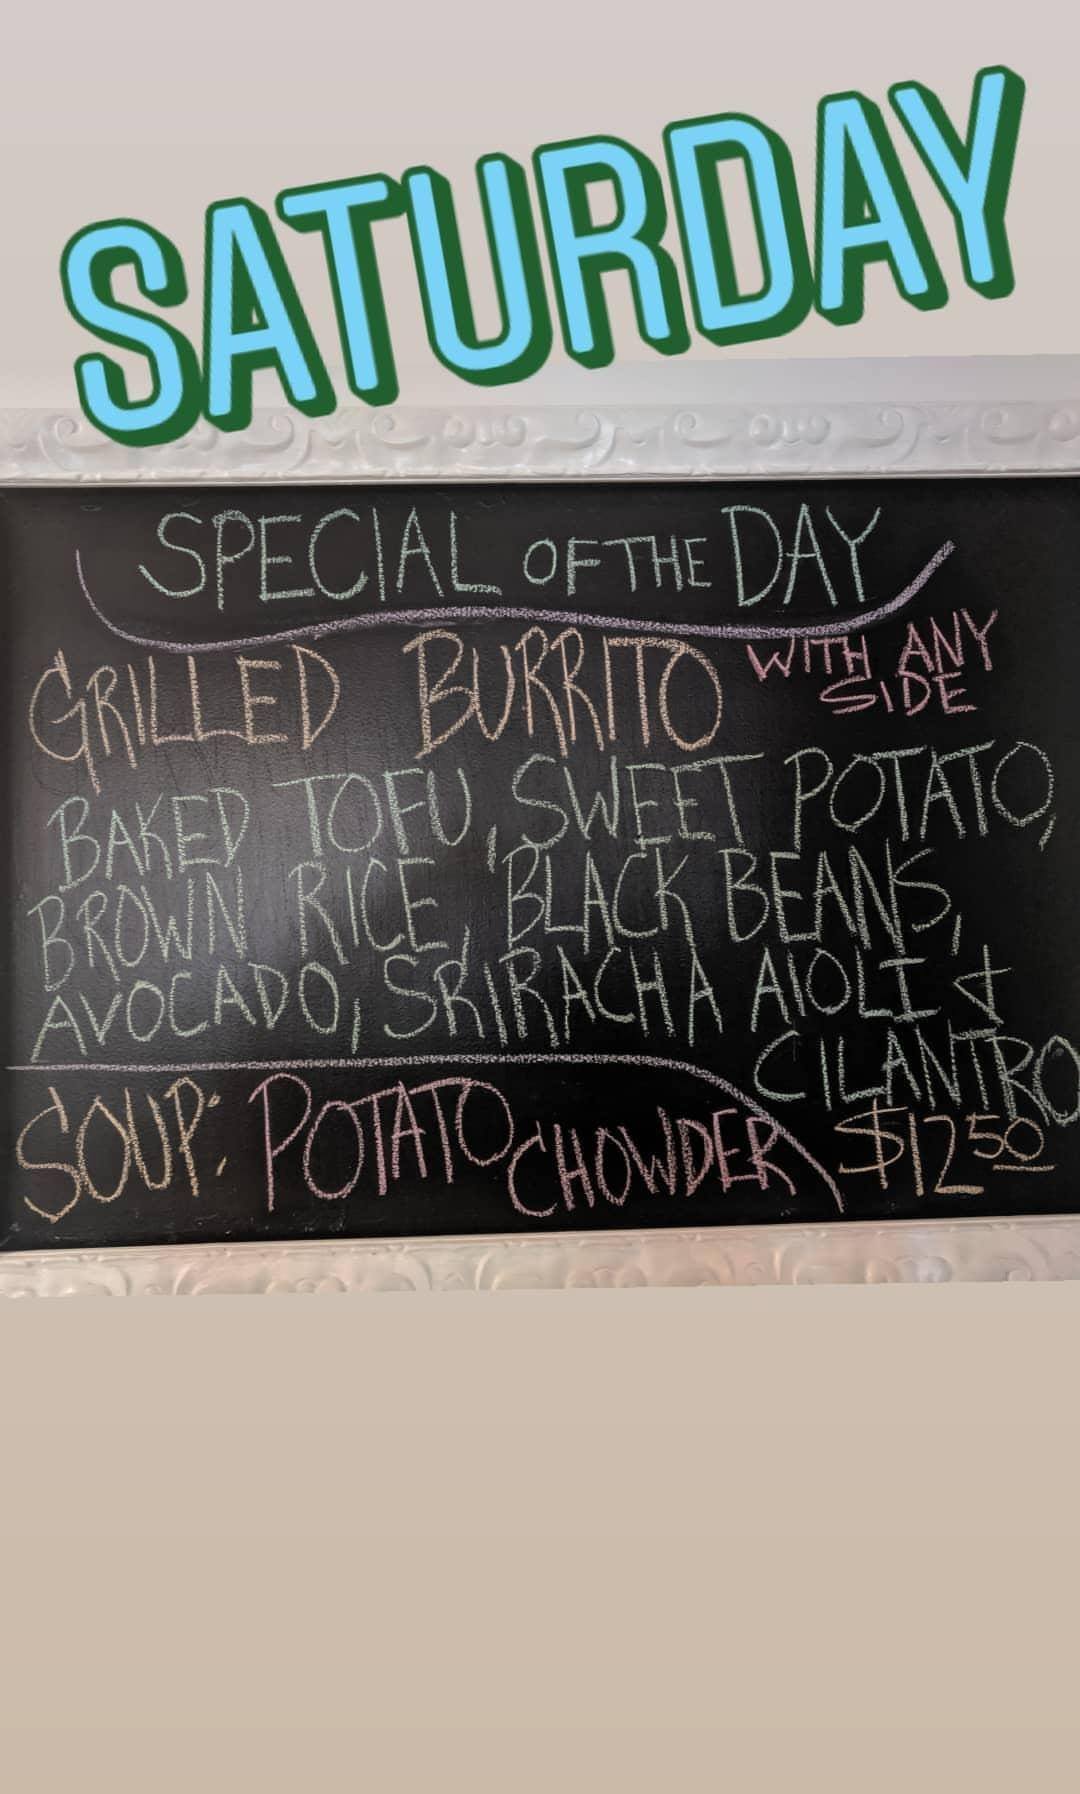 SATURDAY
SPECIAL OF THE DAY
GRILLED BURRITO WITH ANY
SIDE
BAKED TOFU, SWEET POTATO,
BROWN RICE, BLACK BEANS,
AVOCADO, SRIRACHA AIOLI &
CILANTRO
SOUP: POTATO CHOWDER $12.50